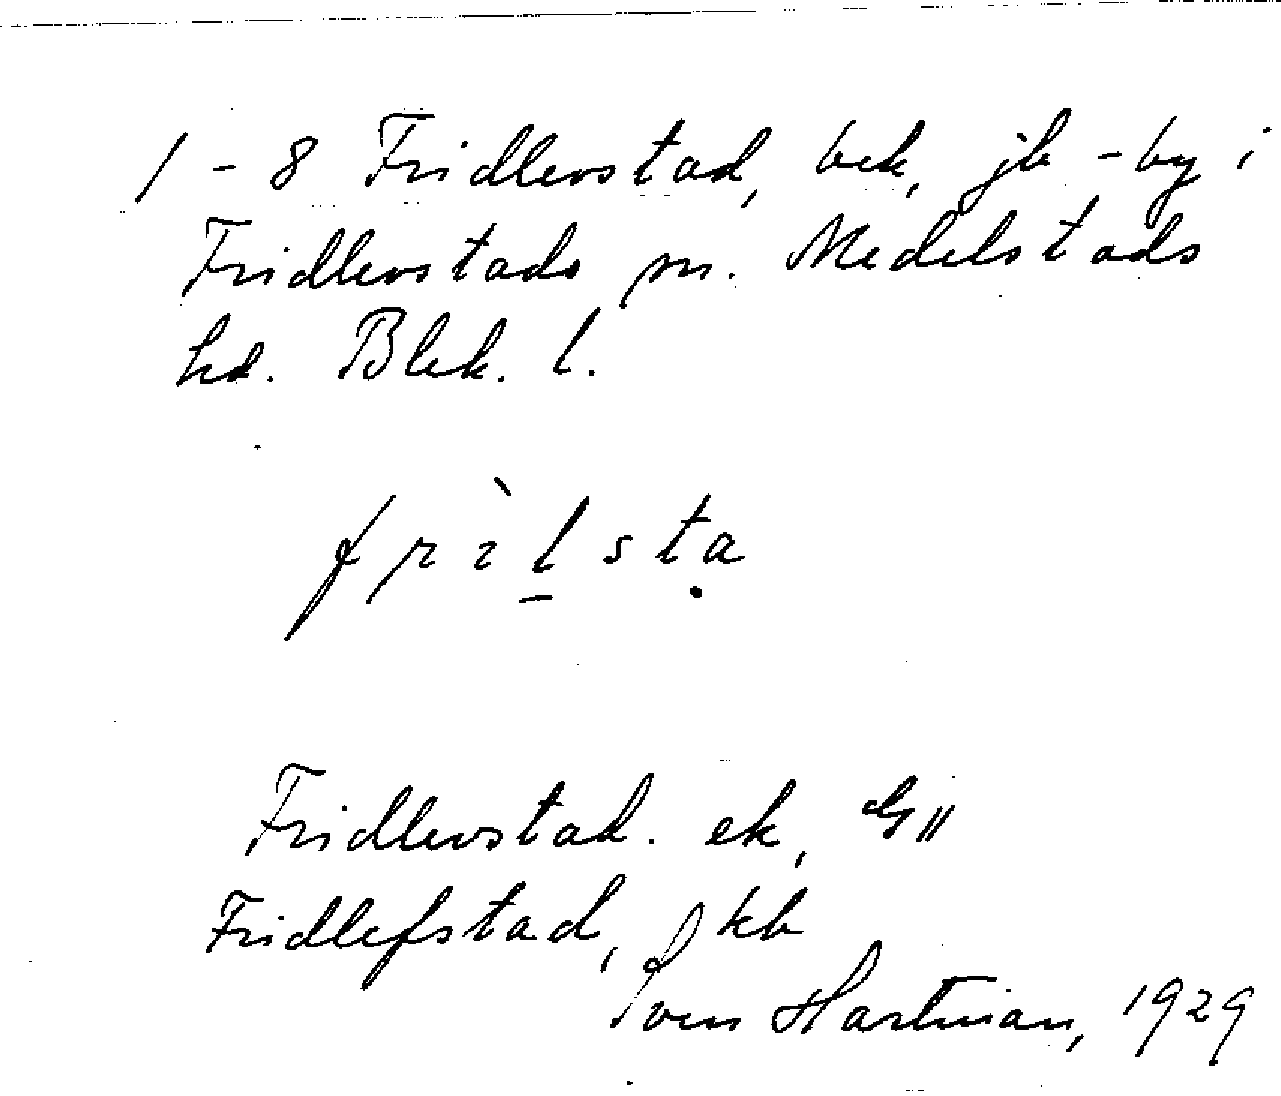 1 - 8 Fridlevstad, bek, jb -by i
Fridlevstads sn. Medelstads
hd. Blek. l.
frìlsta
Fridlevstad. ek, GII
Fridlefstad, kb
Sven Hartman, 1929